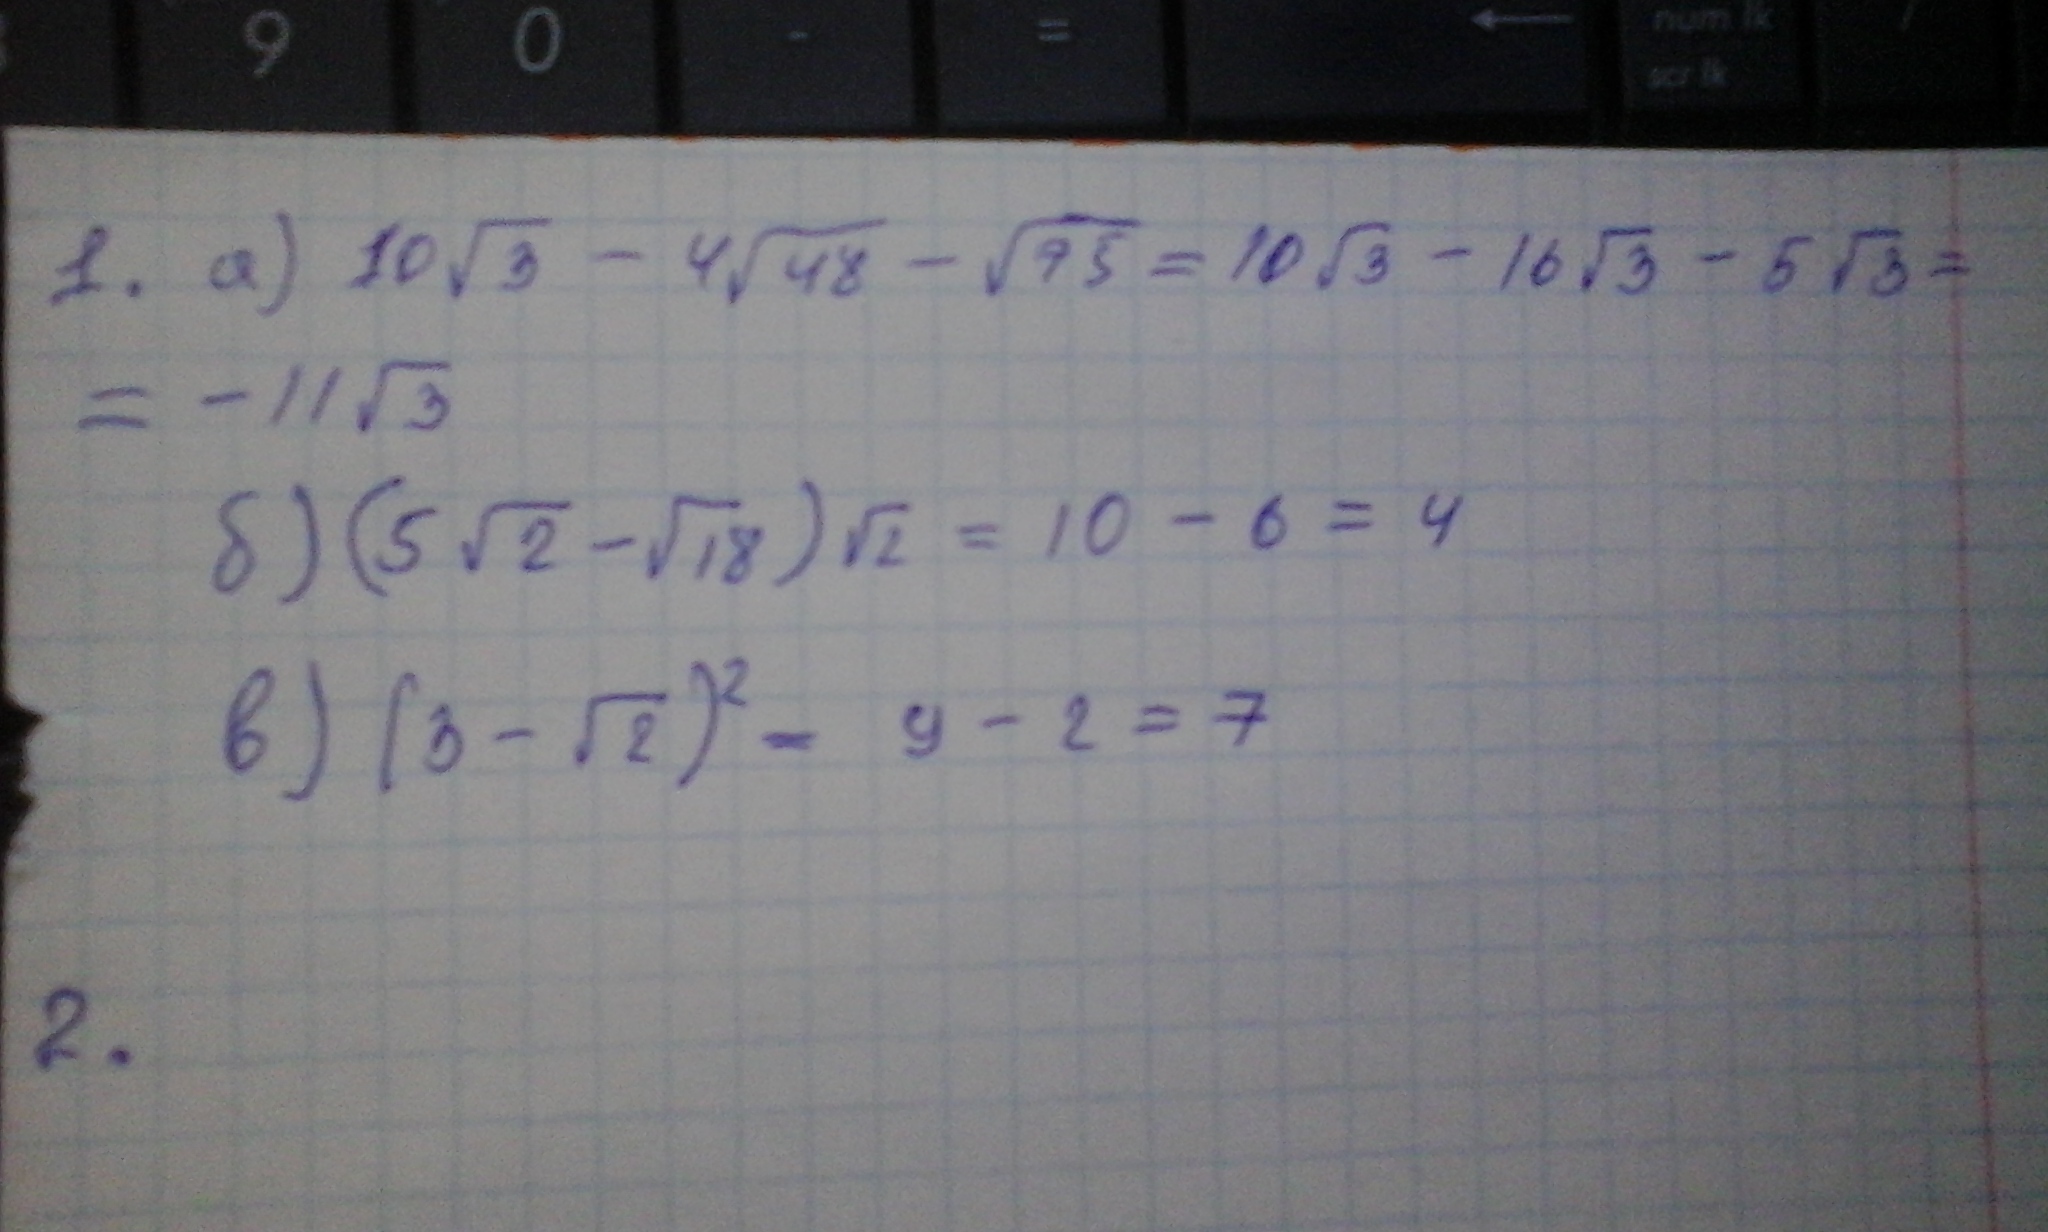 9 0 - = ← num lk /
scr lk
1. а) 10√3 - 4√48 - √75 = 10√3 - 16√3 - 5√3 =
= -11√3
б) (5√2 - √18)√2 = 10 - 6 = 4
в) (3 - √2)² - 9 - 2 = 7
2.